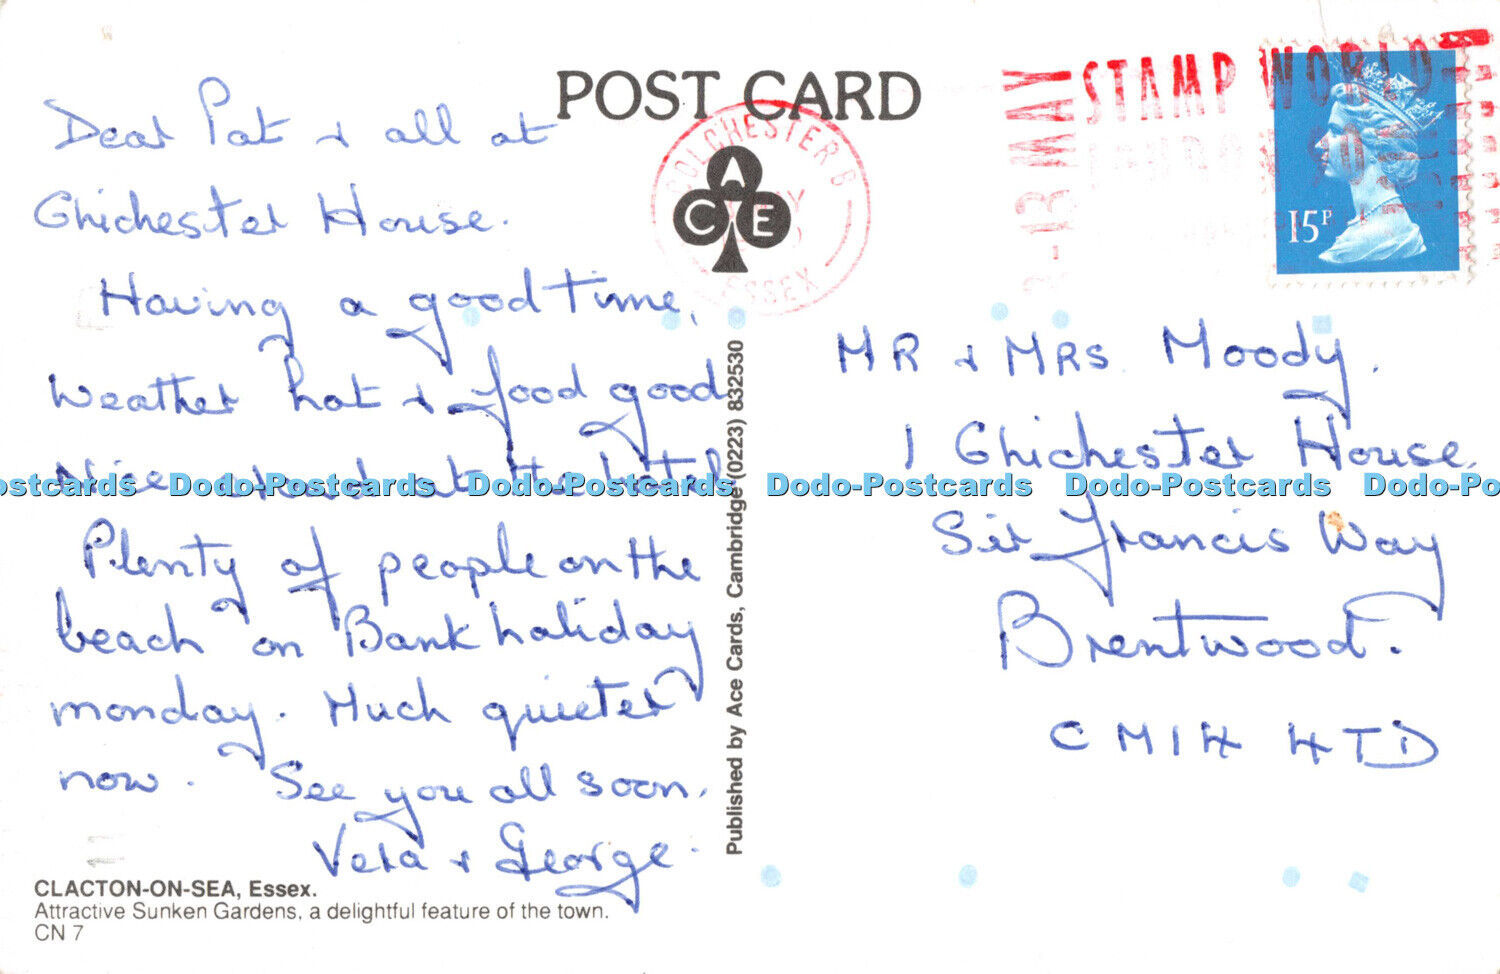 POST CARD
Dear Pat & all at
Chichester House.
Having a good time,
Weather hot & food good
Nice crowd at the hotel
Plenty of people on the
beach on Bank holiday
monday. Much quieter
now. See you all soon.
Vera & George.
CLACTON-ON-SEA, Essex.
Attractive Sunken Gardens, a delightful feature of the town.
CN 7
Published by Ace Cards, Cambridge (0223) 832530
ACE
COLCHESTER B
ESSEX
13 MAY
STAMP WORLD
LONDON 90
15P
MR & MRS Moody.
1 Chichester House,
Sir Francis Way
Brentwood.
CM14 4TD
Dodo-Postcards Dodo-Postcards Dodo-Postcards Dodo-Postcards